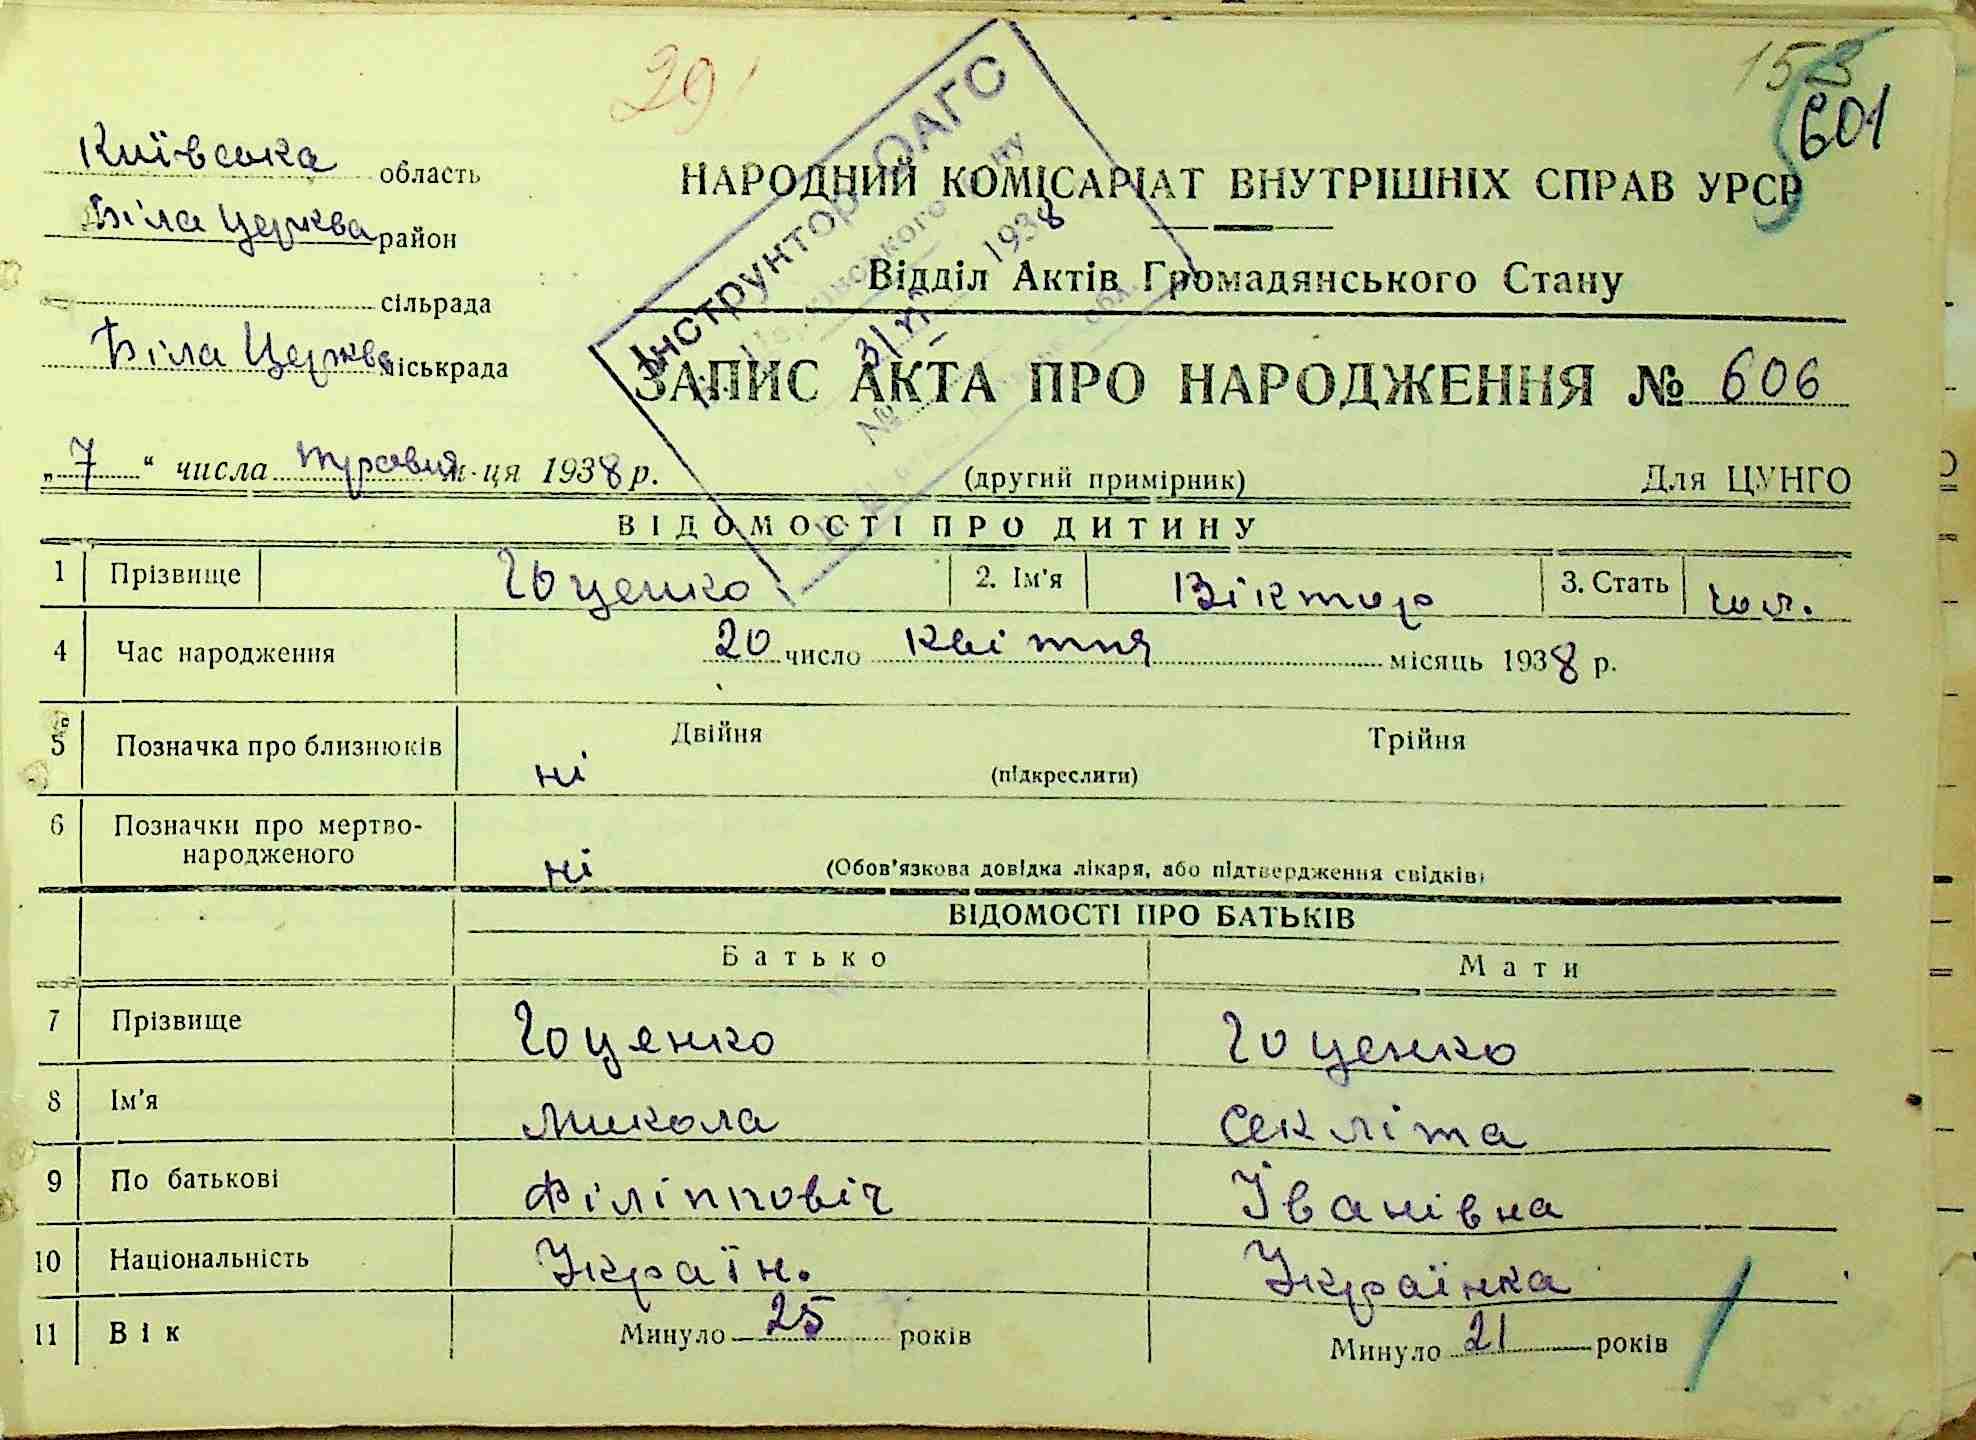 29
153
601
Київська область
Біла Церква район
сільрада
Біла Церква міськрада
Інструктор ОАГС
31/VII 1938
№
НАРОДНИЙ КОМІСАРІАТ ВНУТРІШНІХ СПРАВ УРСР
Відділ Актів Громадянського Стану
ЗАПИС АКТА ПРО НАРОДЖЕННЯ № 606
„7“ числа травня м-ця 1938 р. (другий примірник) Для ЦУНГО
ВІДОМОСТІ ПРО ДИТИНУ
1 Прізвище Гоценко 2. Ім'я Віктор 3. Стать чол.
4 Час народження 20 число квітня місяць 1938 р.
5 Позначка про близнюків ні Двійня Трійня
(підкреслити)
6 Позначки про мертво-
народженого ні (Обов'язкова довідка лікаря, або підтвердження свідків)
ВІДОМОСТІ ПРО БАТЬКІВ
Батько Мати
7 Прізвище Гоценко Гоценко
8 Ім'я Микола Секліта
9 По батькові Філіппові́ч Іванівна
10 Національність Україн. Українка
11 Вік Минуло 25 років Минуло 21 років